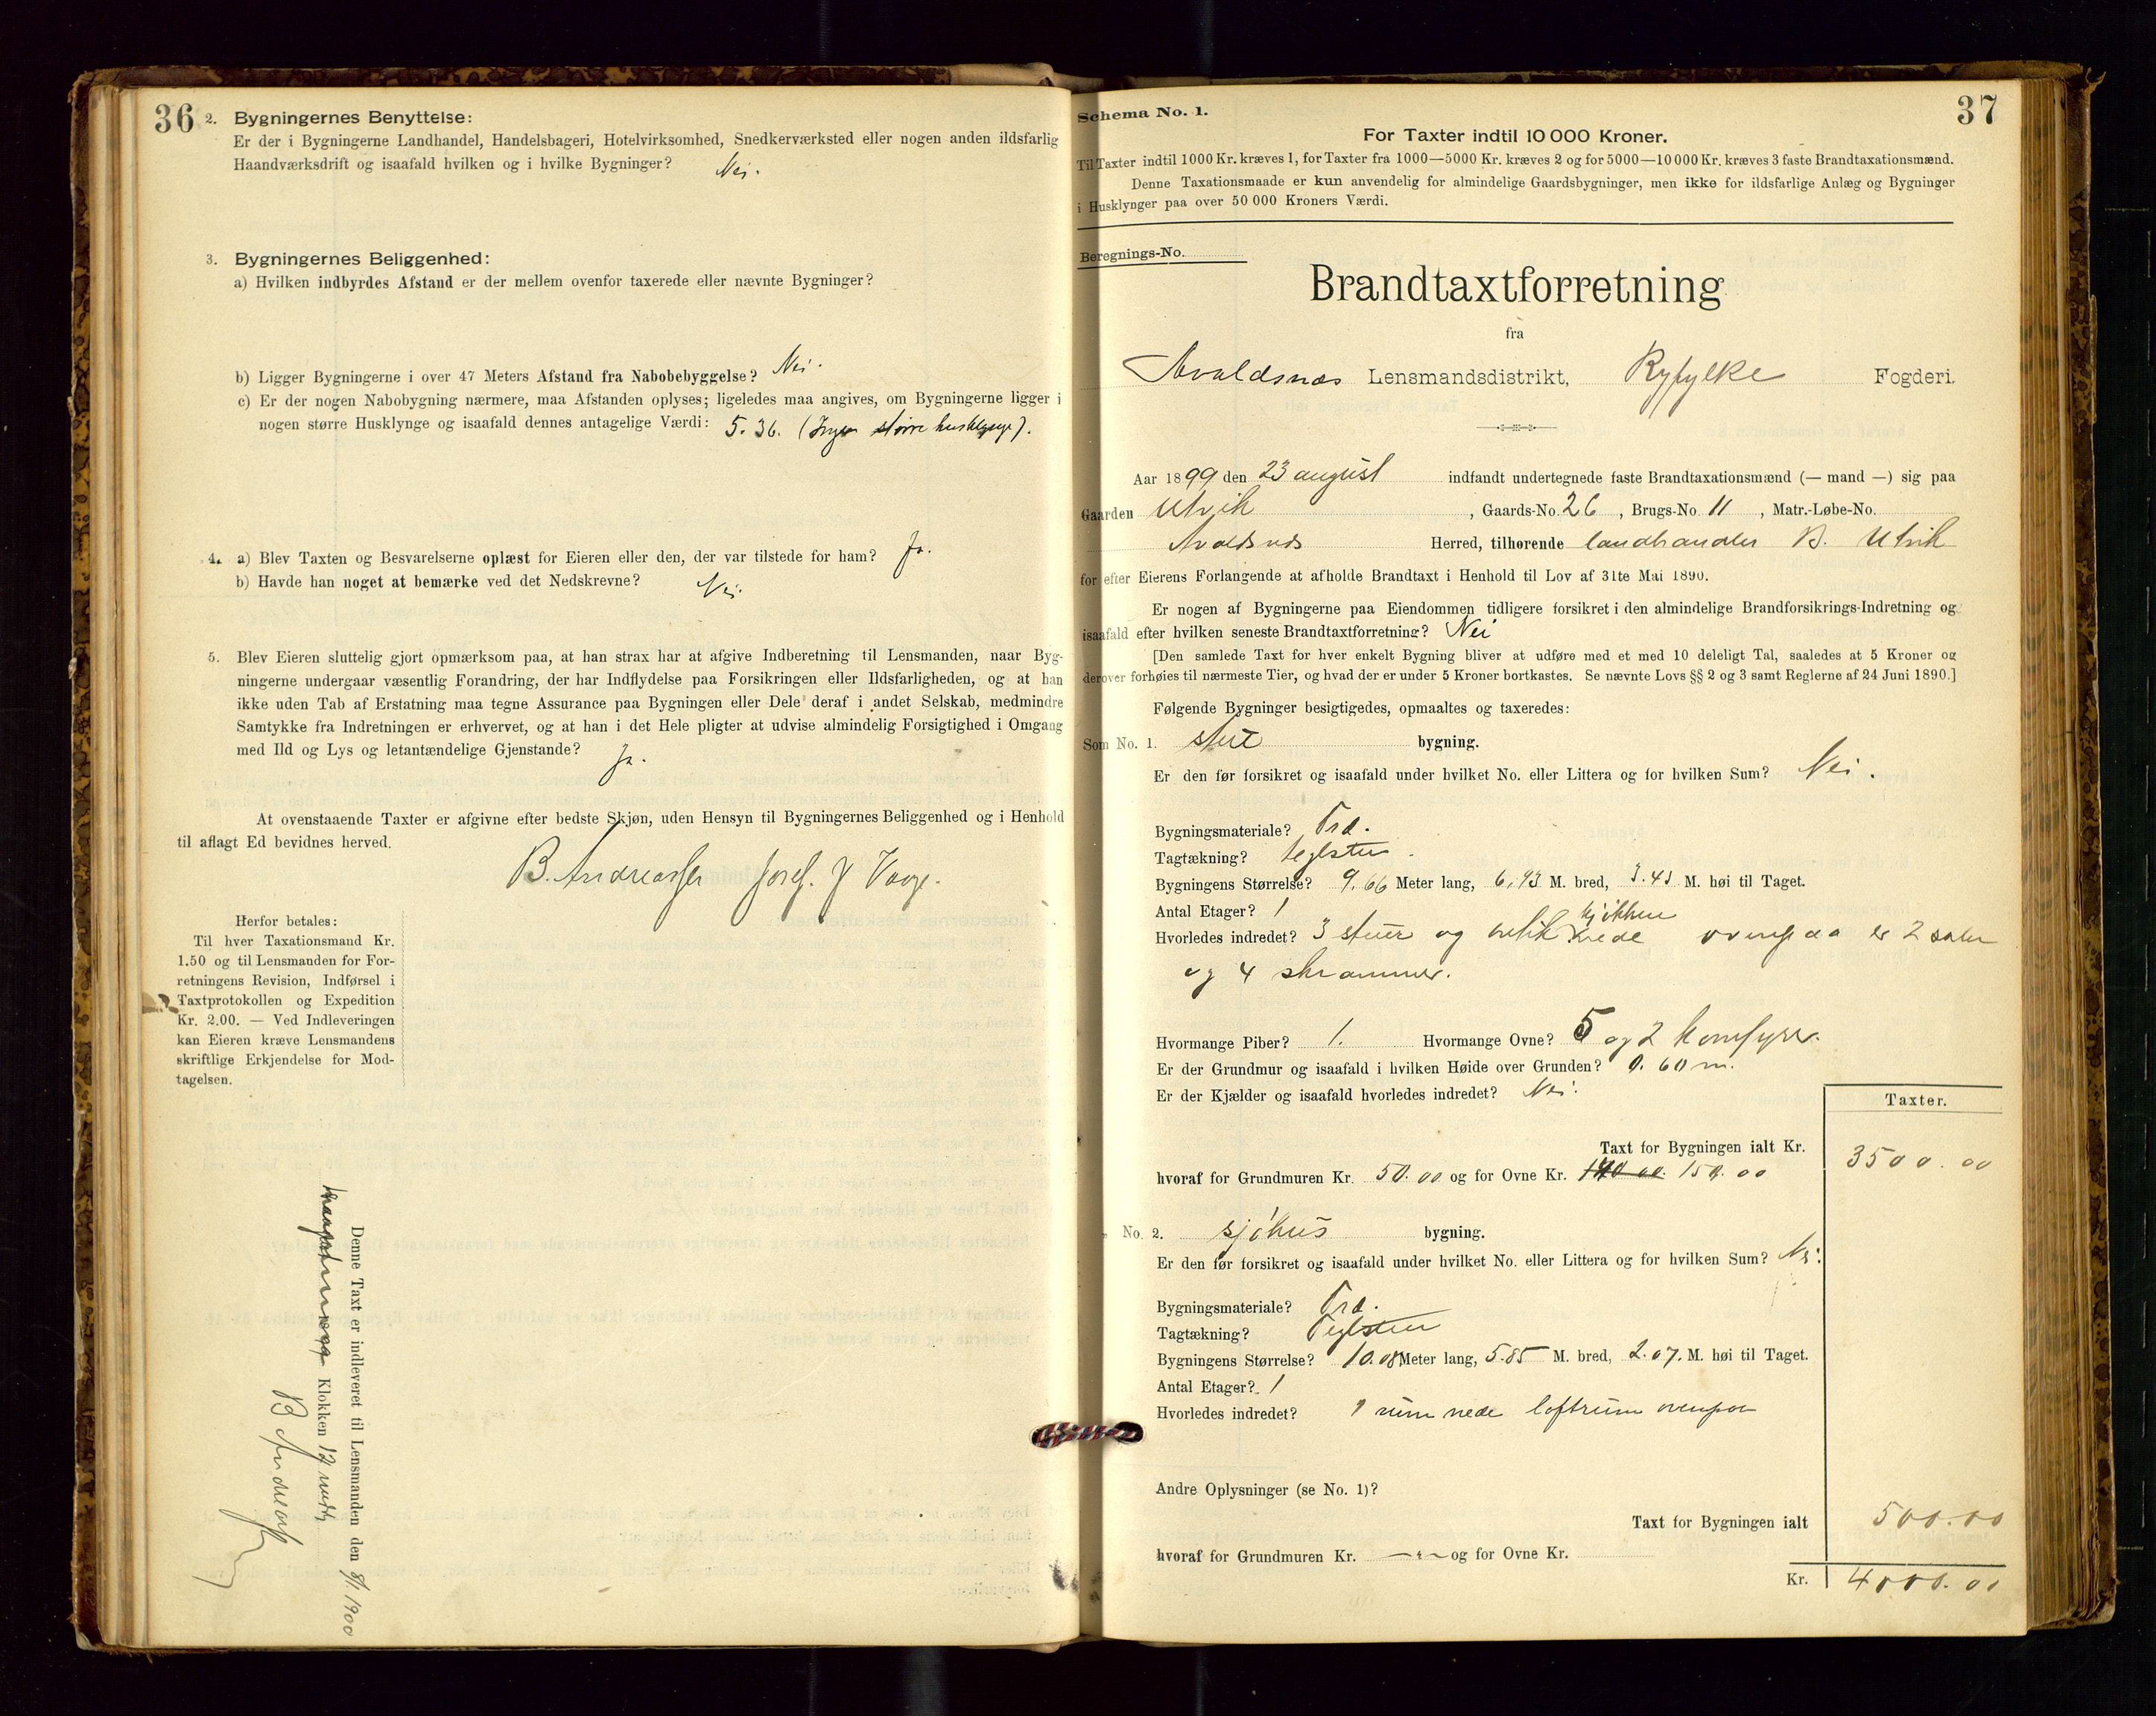 36
2. Bygningernes Benyttelse:
Er der i Bygningerne Landhandel, Handelsbageri, Hotelvirksomhed, Snedkerværksted eller nogen anden ildsfarlig
Haandværksdrift og isaafald hvilken og i hvilke Bygninger? Nei.
3. Bygningernes Beliggenhed:
a) Hvilken indbyrdes Afstand er der mellem ovenfor taxerede eller nævnte Bygninger?
b) Ligger Bygningerne i over 47 Meters Afstand fra Nabobebyggelse? Nei.
c) Er der nogen Nabobygning nærmere, maa Afstanden oplyses; ligeledes maa angives, om Bygningerne ligger i
nogen større Husklynge og isaafald dennes antagelige Værdi: 5.36. (Ingen større husklynge).
4. a) Blev Taxten og Besvarelserne oplæst for Eieren eller den, der var tilstede for ham? Ja.
b) Havde han noget at bemærke ved det Nedskrevne? Nei.
5. Blev Eieren sluttelig gjort opmærksom paa, at han strax har at afgive Indberetning til Lensmanden, naar Byg-
ningerne undergaar væsentlig Forandring, der har Indflydelse paa Forsikringen eller Ildsfarligheden, og at han
ikke uden Tab af Erstatning maa tegne Assurance paa Bygningen eller Dele deraf i andet Selskab, medmindre
Samtykke fra Indretningen er erhvervet, og at han i det Hele pligter at udvise almindelig Forsigtighed i Omgang
med Ild og Lys og letantændelige Gjenstande? Ja.
At ovenstaaende Taxter er afgivne efter bedste Skjøn, uden Hensyn til Bygningernes Beliggenhed og i Henhold
til aflagt Ed bevidnes herved.
B. Andreassen Josef. J Vaage.
Herfor betales:
Til hver Taxationsmand Kr.
1.50 og til Lensmanden for For-
retningens Revision, Indførsel i
Taxtprotokollen og Expedition
Kr. 2.00. — Ved Indleveringen
kan Eieren kræve Lensmandens
skriftlige Erkjendelse for Mod-
tagelsen.
Denne Taxt er indleveret til Lensmanden den 8/1 1900
Klokken 12
37
Schema No. 1.
For Taxter indtil 10 000 Kroner.
Til Taxter indtil 1000 Kr. kræves 1, for Taxter fra 1000—5000 Kr. kræves 2 og for 5000—10 000 Kr. kræves 3 faste Brandtaxationsmænd.
Denne Taxationsmaade er kun anvendelig for almindelige Gaardsbygninger, men ikke for ildsfarlige Anlæg og Bygninger
i Husklynger paa over 50 000 Kroners Værdi.
Beregnings-No.
Brandtaxtforretning
fra
Avaldsnæs Lensmandsdistrikt, Ryfylke Fogderi.
Aar 1899 den 23 august indfandt undertegnede faste Brandtaxationsmænd (— mand —) sig paa
Gaarden Utvik, Gaards-No. 26, Brugs-No. 11, Matr.-Løbe-No.
Avaldsnes Herred, tilhørende landhandler B. Utvik
for efter Eierens Forlangende at afholde Brandtaxt i Henhold til Lov af 31te Mai 1890.
Er nogen af Bygningerne paa Eiendommen tidligere forsikret i den almindelige Brandforsikrings-Indretning og
isaafald efter hvilken seneste Brandtaxtforretning? Nei
[Den samlede Taxt for hver enkelt Bygning bliver at udføre med et med 10 deleligt Tal, saaledes at 5 Kroner og
derover forhøies til nærmeste Tier, og hvad der er under 5 Kroner bortkastes. Se nævnte Lovs §§ 2 og 3 samt Reglerne af 24 Juni 1890.]
Følgende Bygninger besigtigedes, opmaaltes og taxeredes:
Som No. 1. stue bygning.
Er den før forsikret og isaafald under hvilket No. eller Littera og for hvilken Sum? Nei.
Bygningsmateriale? Træ.
Tagtækning? teglsten
Bygningens Størrelse? 9.66 Meter lang, 6,93 M. bred, 3.43 M. høi til Taget.
Antal Etager? 1
Hvorledes indredet? 3 stuer og kjøkken nede ovenpaa er 2 saler
og 4 skrammer.
Hvormange Piber? 1. Hvormange Ovne? 5 og 2 komfyrer.
Er der Grundmur og isaafald i hvilken Høide over Grunden? 0.60 m.
Er der Kjælder og isaafald hvorledes indredet? Nei.
Taxter.
Taxt for Bygningen ialt Kr. 3500.00
hvoraf for Grundmuren Kr. 50.00 og for Ovne Kr. 150.00
No. 2. sjøhus bygning.
Er den før forsikret og isaafald under hvilket No. eller Littera og for hvilken Sum? Nei.
Bygningsmateriale? Træ.
Tagtækning? Teglsten
Bygningens Størrelse? 10.08 Meter lang, 5.85 M. bred, 2.07. M. høi til Taget.
Antal Etager? 1
Hvorledes indredet? 1 rum nede loftrum ovenpaa
Andre Oplysninger (se No. 1)?
Taxt for Bygningen ialt 500.00
hvoraf for Grundmuren Kr. — og for Ovne Kr.
Kr. 4000.00